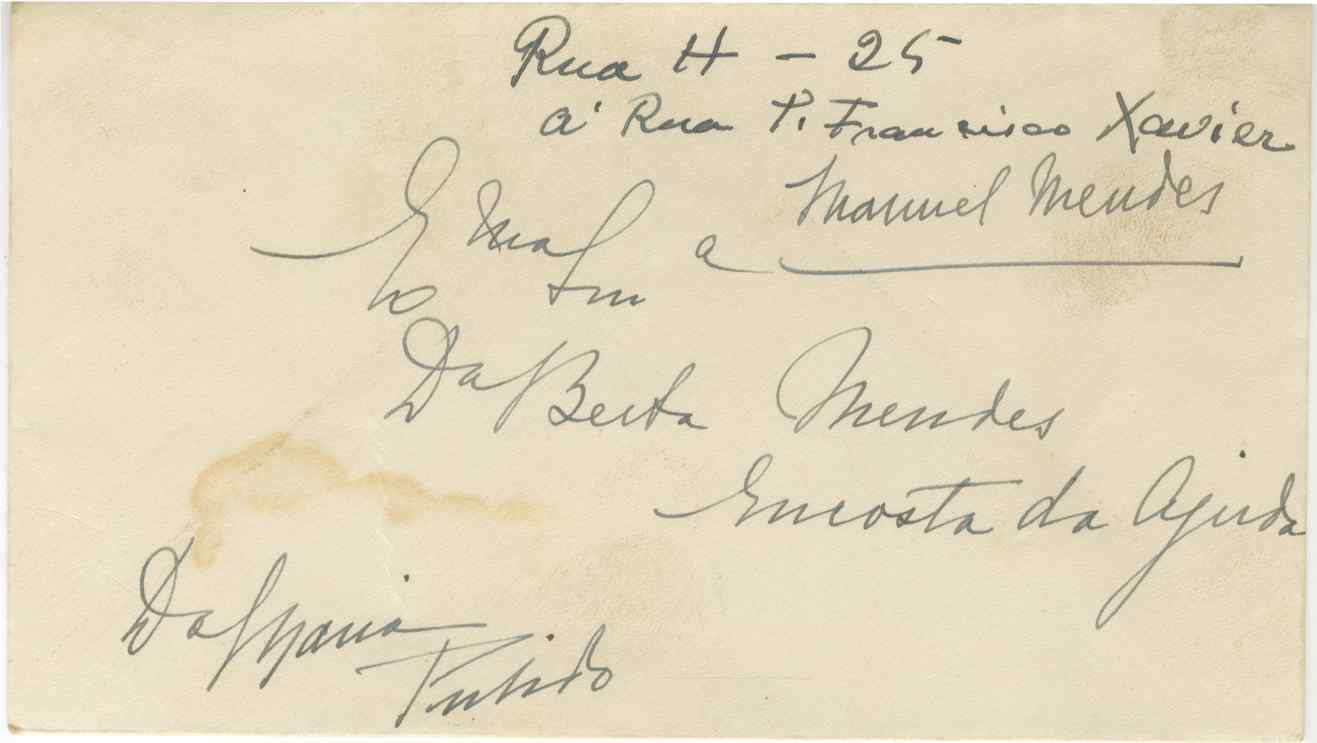 Rua H - 25
á Rua P. Francisco Xavier
Manuel Mendes
Exma Snra
Da Berta Mendes
Encosta da Ajuda
Da Maria